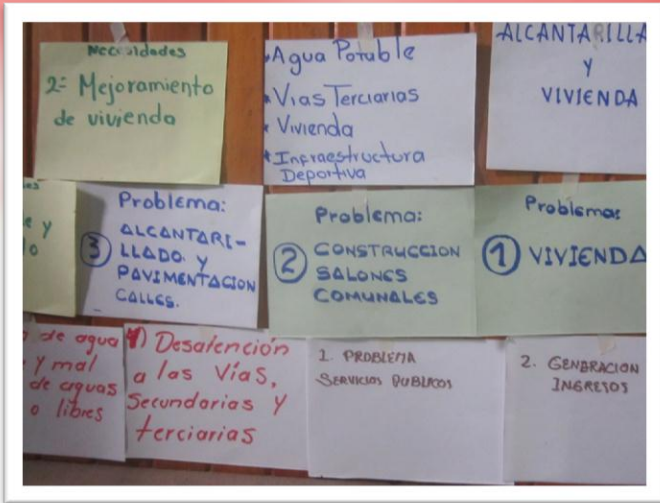 Necesidades
2= Mejoramiento
de vivienda
Agua Potable
Vias Terciarias
Vivienda
Infraestructura
Deportiva
ALCANTARILLA
Y
VIVIENDA
y
Problema:
3 ALCANTARI-
LLADO Y
PAVIMENTACION
CALLES.
Problema:
2 CONSTRUCCION
SALONES
COMUNALES
Problema:
1 VIVIENDA
de agua
y mal
de aguas
o libres
1) Desatención
a las Vías,
Secundarias y
terciarias
1. PROBLEMA
SERVICIOS PUBLICOS
2. GENERACION
INGRESOS